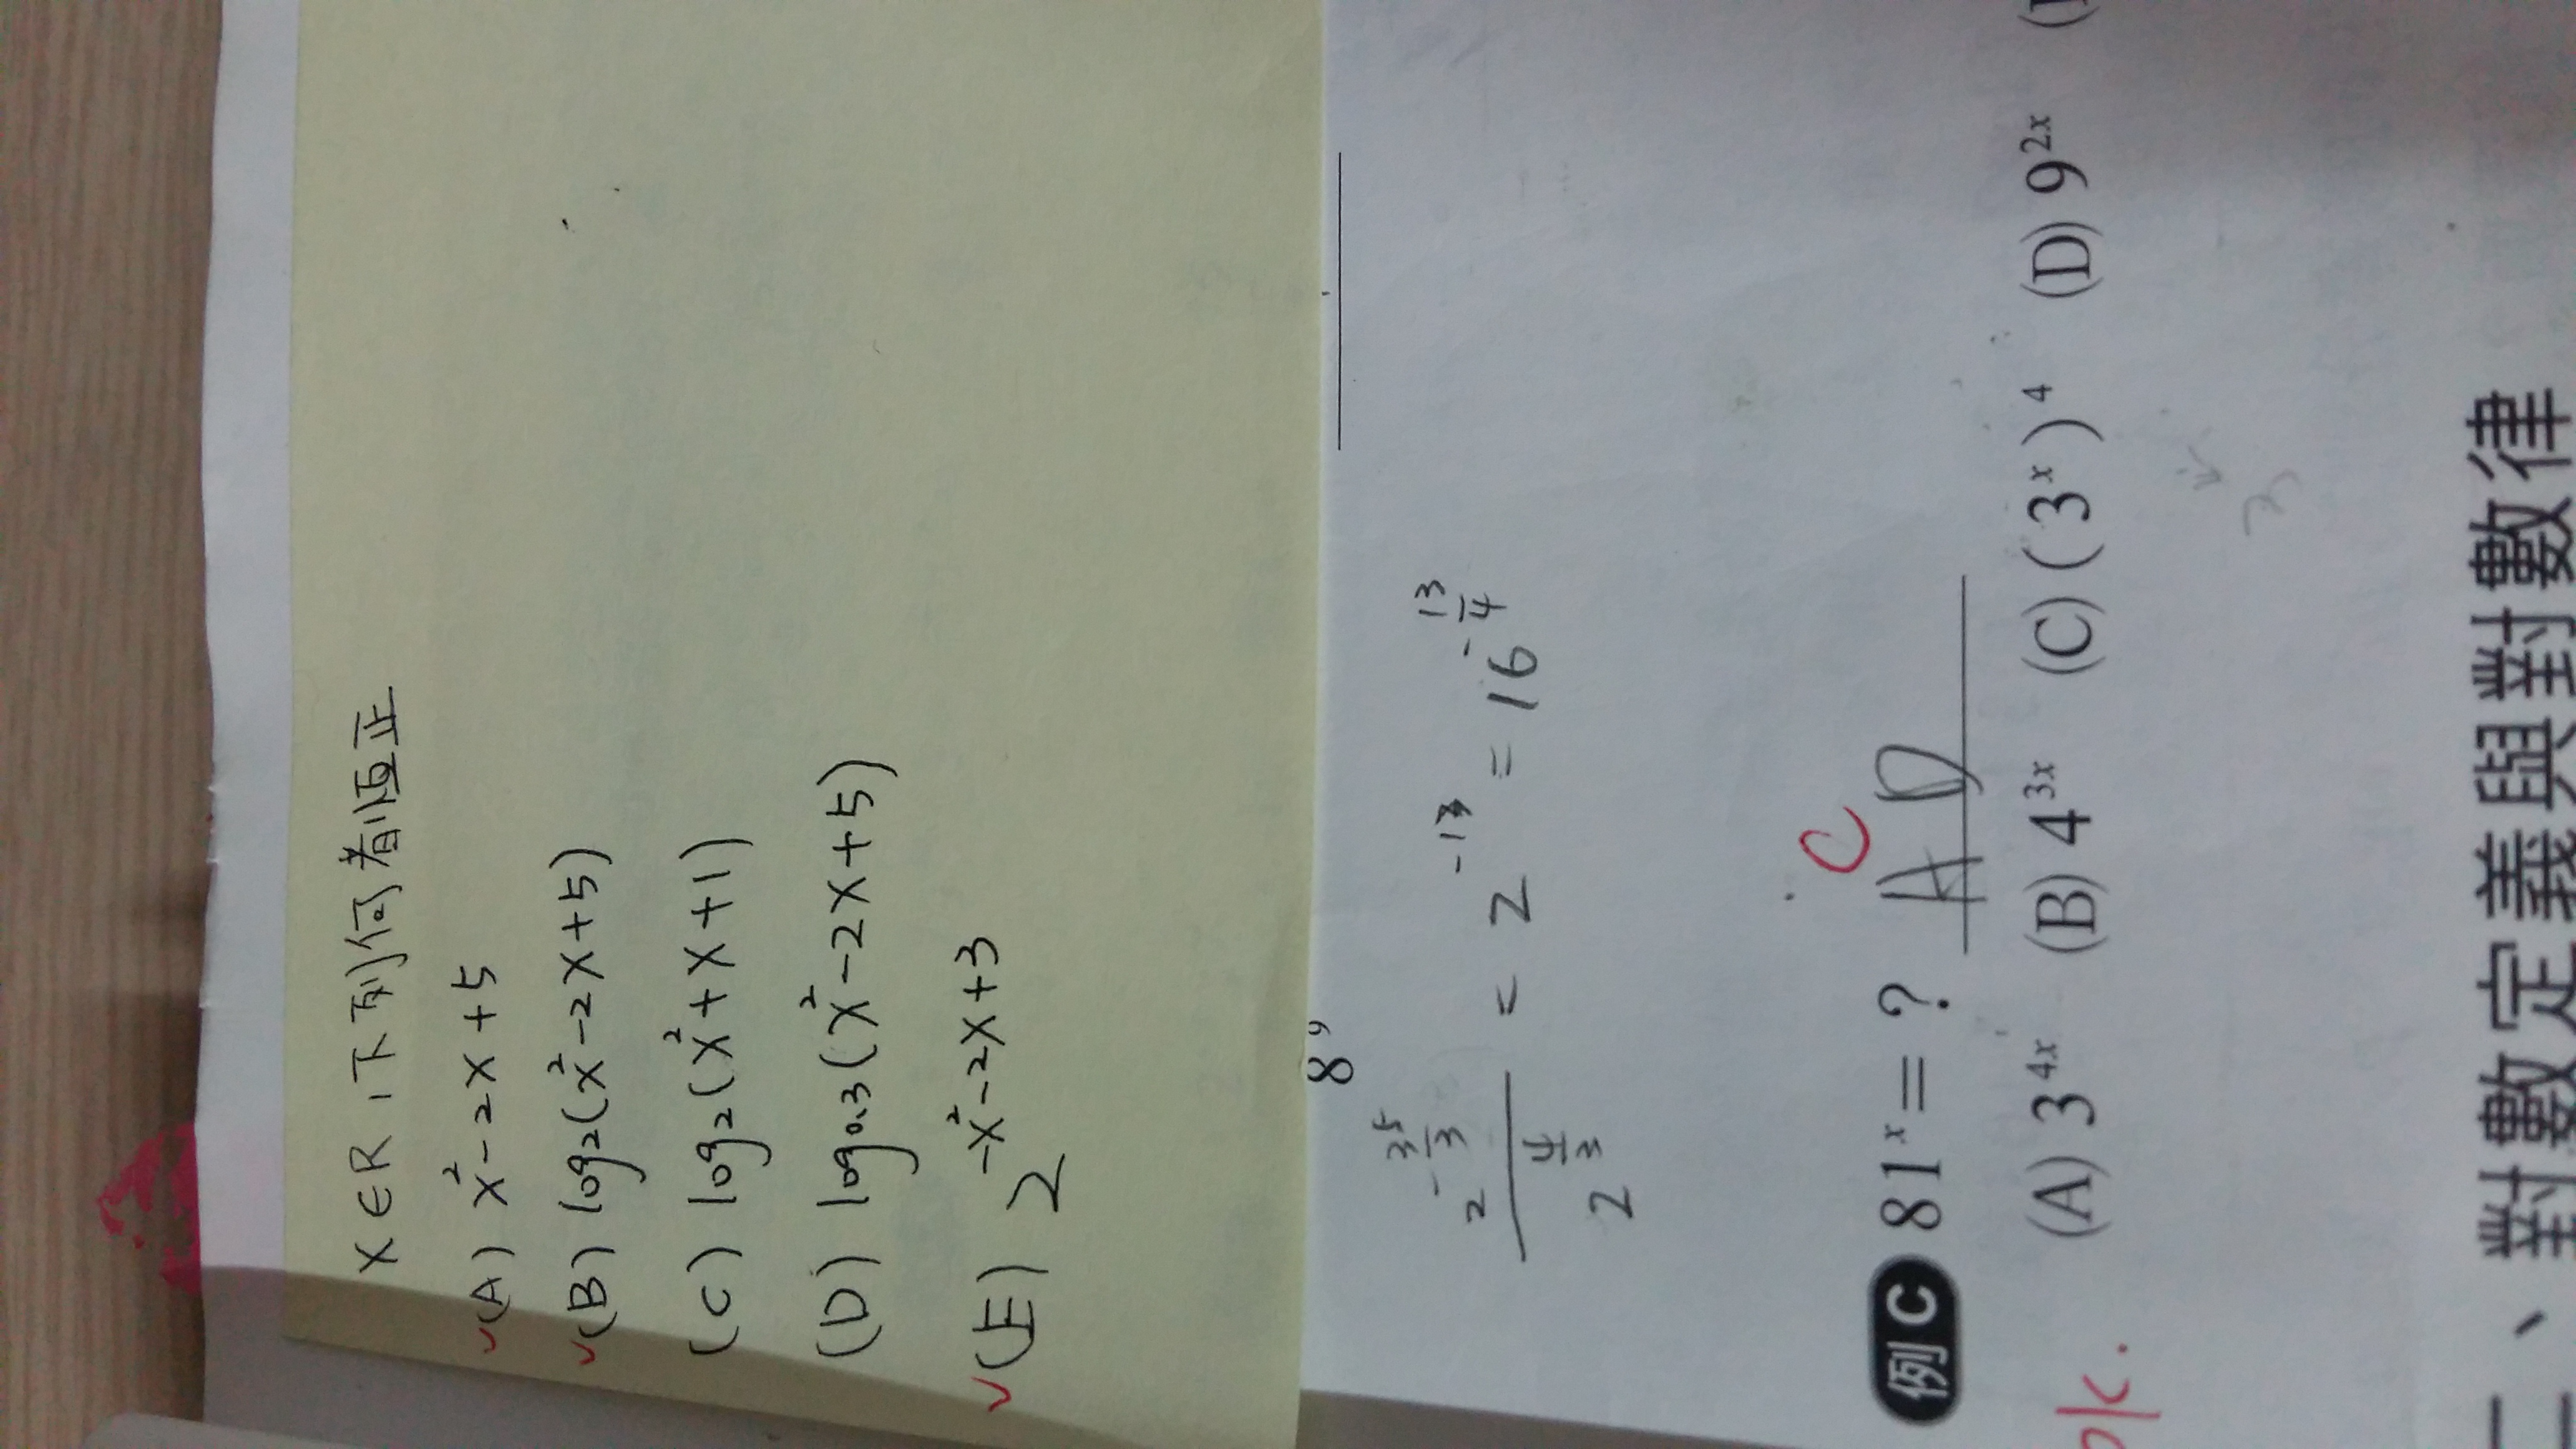 x∈R,下列何者恆正
✓(A) x²-2x+5
✓(B) log₂(x²-2x+5)
(C) log₂(x²+x+1)
(D) log₀.₃(x²-2x+5)
✓(E) 2^(-x²-2x+3)
8⁹
2^(-35/3) / 2^(4/3) = 2^(-13) = 16^(-13/4)
例C 81ˣ=? A C D
(A) 3⁴ˣ (B) 4³ˣ (C) (3ˣ)⁴ (D) 9²ˣ
ok.
二、對數定義與對數律